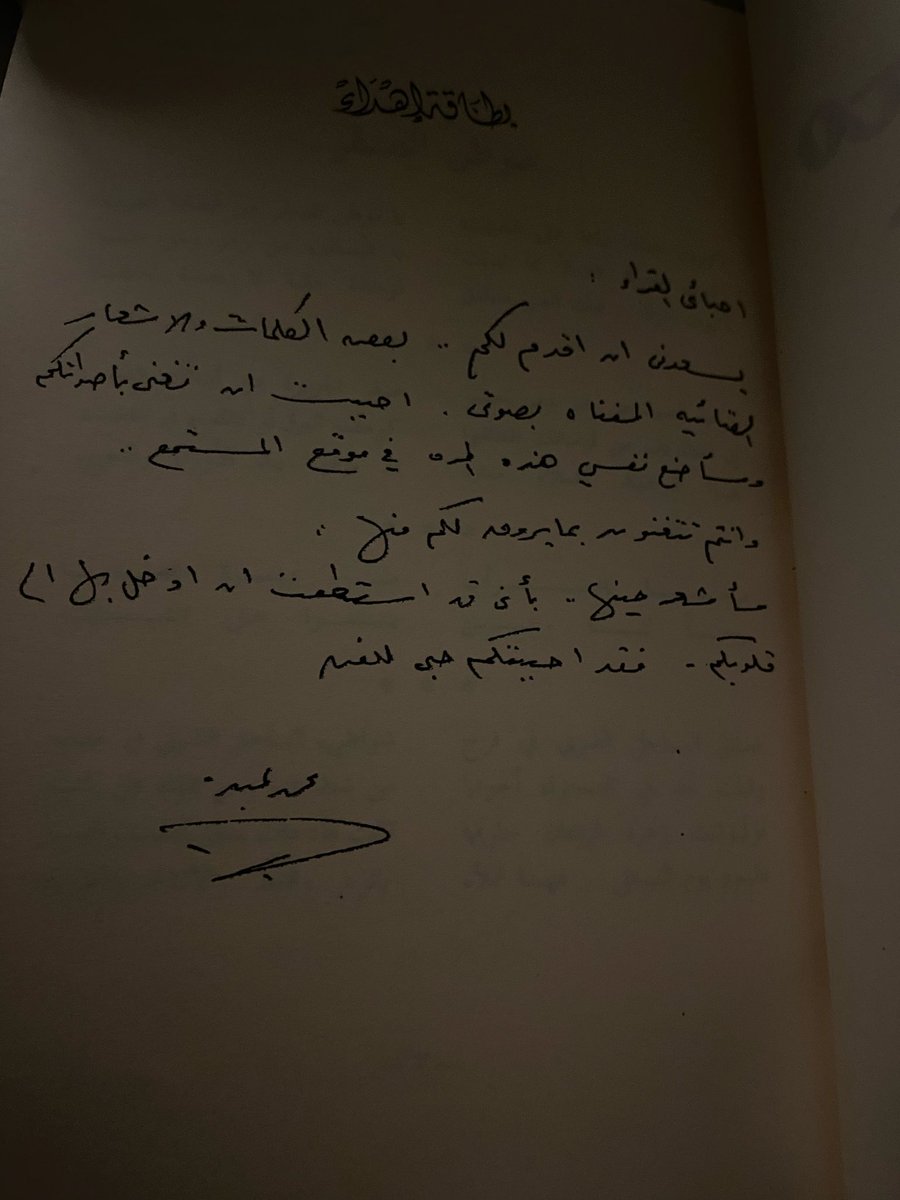 بطاقة إهداء
احبائي القراء :
يسعدني ان اقدم لكم .. بعض الكلمات والاشعار
الغنائيه المغناه بصوتي . احببت ان تتغنى بأصواتكم
وسأضع نفسي هذه المره في موقع المستمع ..
وانتم تتغنون بما يروق لكم منها :
سأشعر حينها .. بأني قد استطعت ان ادخل بها الى
قلوبكم - فقد احببتكم حبي للفن
محمد عبده